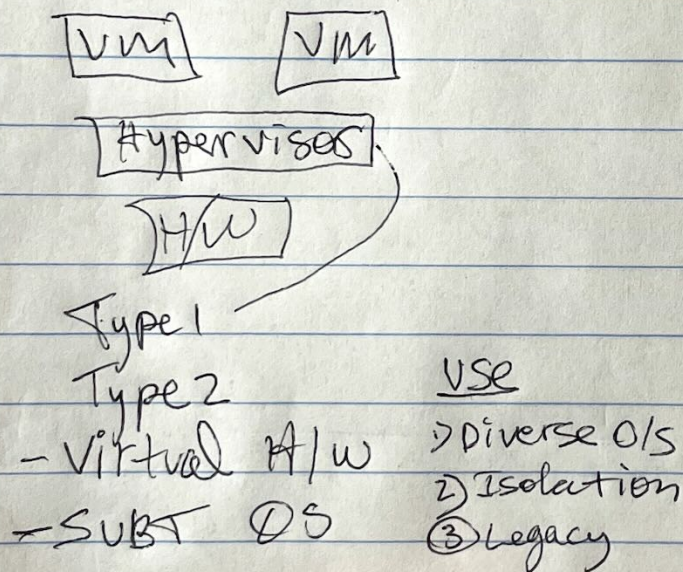 VM VM
Hypervisor
H/W
Type 1
Type 2
- Virtual H/W
- SUBT OS
USE
1) Diverse O/S
2) Isolation
3 Legacy